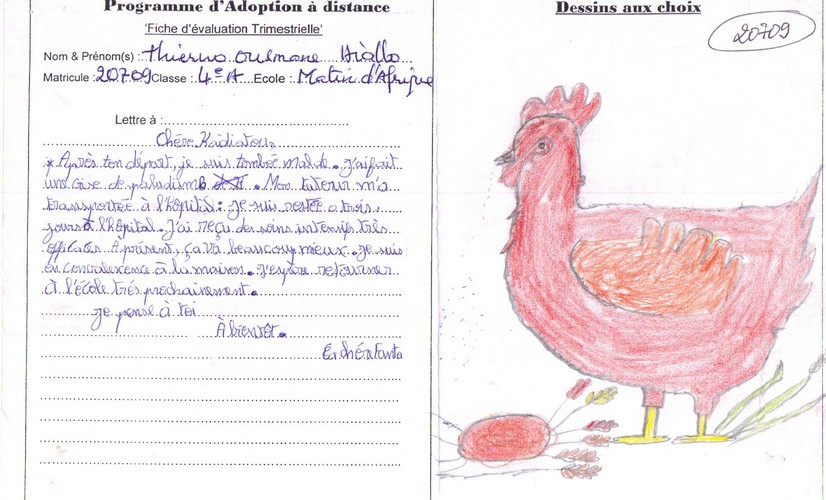 Programme d'Adoption à distance
'Fiche d'évaluation Trimestrielle'
Nom & Prénom(s) : Thierno Ousmane Diallo
Matricule : 20709 Classe : 4e A Ecole : Matin d'Afrique
Lettre à :
Chère Kadiatou,
Après ton départ, je suis tombée malade. J'ai fait
une crise de paludisme. Mon tuteur m'a
transportée à l'hôpital. Je suis restée trois
jours à l'hôpital. J'ai reçu des soins intensifs très
efficaces. A présent, ça va beaucoup mieux. Je suis
en convalescence à la maison. J'espère retourner
à l'école très prochainement.
Je pense à toi
À bientôt.
Dessins aux choix
20709